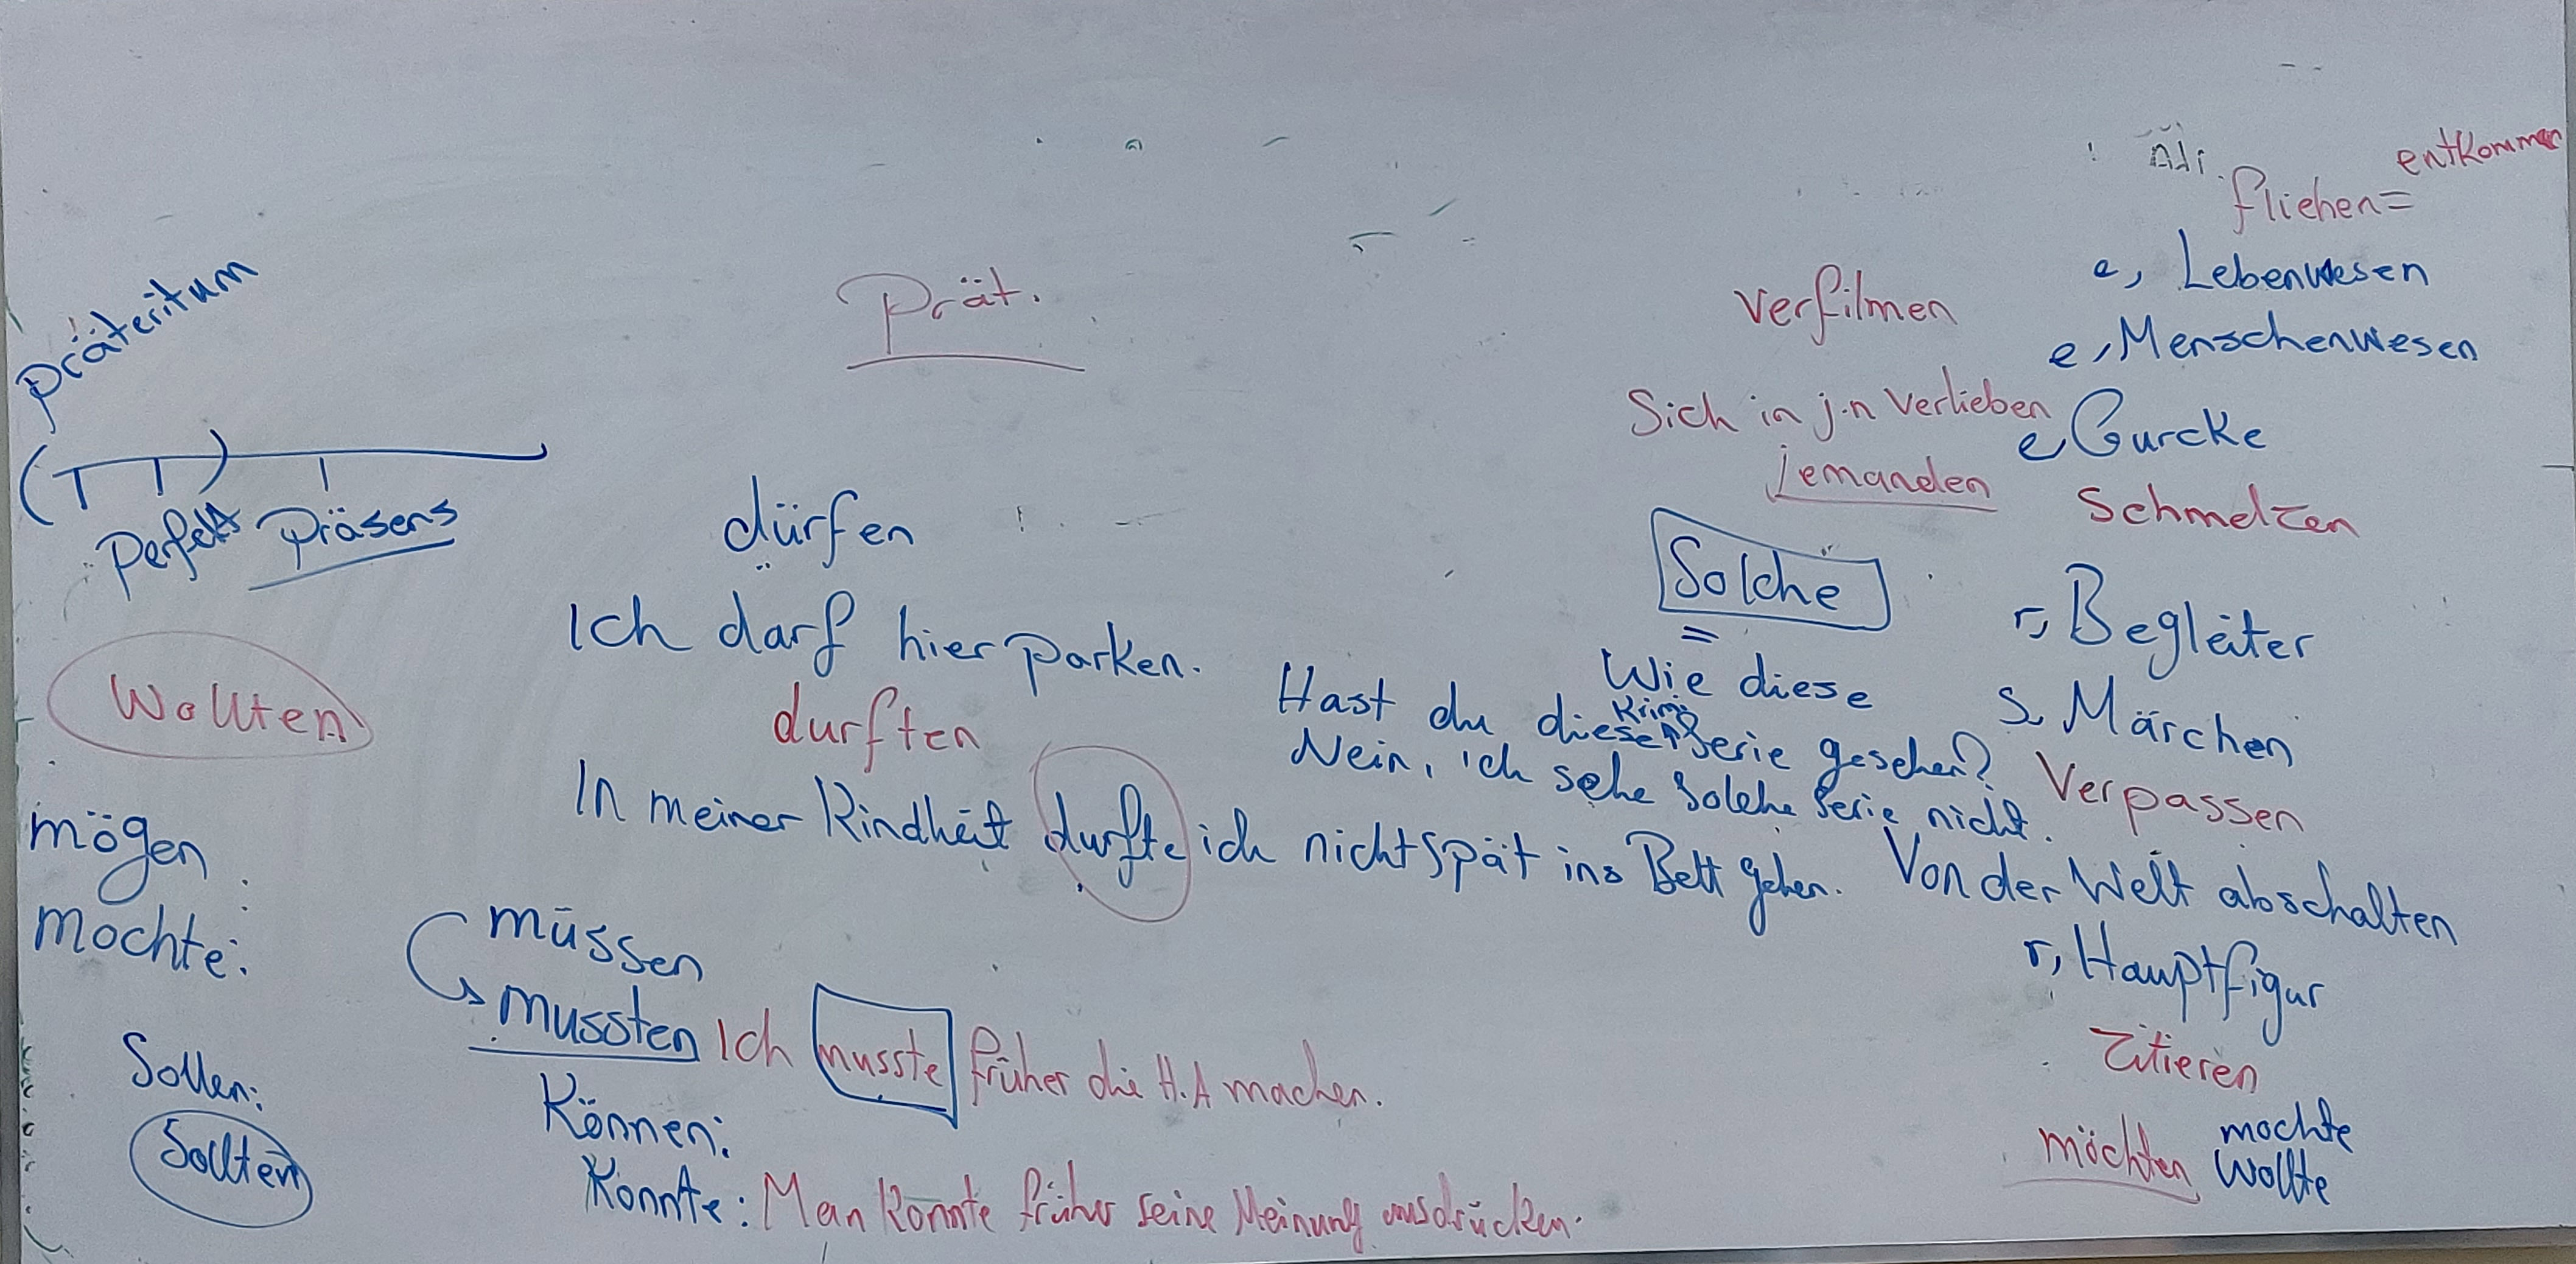 Präteritum
Perfekt Präsens
Wollten
mögen
mochte:
Sollen:
Sollten
Prät.
dürfen
Ich darf hier parken.
durften
In meiner Kindheit durfte ich nicht spät ins Bett gehen.
müssen
mussten Ich musste früher die H.A machen.
Können:
Konnte: Man konnte früher seine Meinung ausdrücken.
verfilmen
Sich in j.n verlieben
jemanden
Solche
=
Wie diese
Krimi
Hast du diese Serie gesehen?
Nein, ich sehe solche Serie nicht.
entkommen
fliehen=
e, Lebenwesen
e, Menschenwesen
e, Gurcke
Schmelzen
r, Begleiter
s, Märchen
Verpassen
Von der Welt abschalten
r, Hauptfigur
Zitieren
mochte
möchten wollte